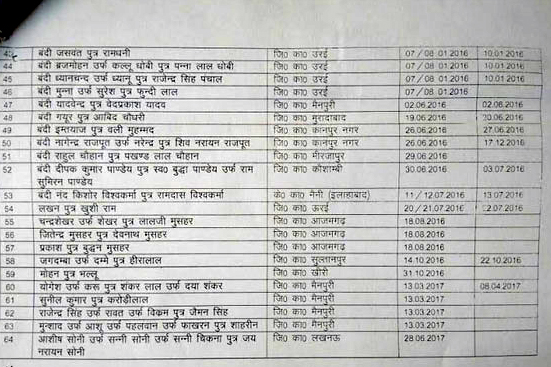 43 बंदी जसवंत पुत्र रामधनी जि0 का0 उरई 07 / 08 01.2016 10.01.2016
44 बंदी ब्रजमोहन उर्फ कल्लू धोबी पुत्र पन्ना लाल धोबी जि0 का0 उरई 07 / 08 01 2016 10.01.2016
45 बंदी ध्यानचन्द उर्फ ध्यानू पुत्र राजेन्द्र सिंह पंचाल जि0 का0 उरई 07 / 08 01.2016 10.01.2016
46 बंदी मुन्ना उर्फ सुरेश पुत्र फुन्दी लाल जि0 का0 उरई 07 / 08 01.2016
47 बंदी यादवेन्द्र पुत्र वेदप्रकाश यादव जि0 का0 मैनपुरी 02.06.2016 02.06.2016
48 बंदी गयूर पुत्र आबिद चौधरी जि0 का0 मुरादाबाद 19.06.2016 20.06.2016
49 बंदी इम्तयाज पुत्र वली मुहम्मद जि0 का0 कानपुर नगर 26.06.2016 27.06.2016
50 बंदी नागेन्द्र राजपूत उर्फ नरेन्द्र पुत्र शिव नरायन राजपूत जि0 का0 कानपुर नगर 26.06.2016 17.12.2016
51 बंदी राहुल चौहान पुत्र पखण्ड लाल चौहान जि0 का0 मीरजापुर 29.06.2016
52 बंदी दीपक कुमार पाण्डेय पुत्र स्व0 बुद्धा पाण्डेय उर्फ राम जि0 का0 कौशाम्बी 30.06.2016 03.07.2016
सुमिरन पाण्डेय
53 बंदी नंद किशोर विश्वकर्मा पुत्र रामदास विश्वकर्मा के0 का0 नैनी (इलाहाबाद) 11 / 12.07.2016 13.07.2016
54 लखन पुत्र खुशी राम जि0 का0 ऊरई 20 / 21.07.2016 22.07.2016
55 चन्द्रशेखर उर्फ शेखर पुत्र लालजी मुसहर जि0 का0 आजमगढ़ 18.08.2016
56 जितेन्द्र मुसहर पुत्र देवनाथ मुसहर जि0 का0 आजमगढ़ 18.08.2016
57 प्रकाश पुत्र बुद्धन मुसहर जि0 का0 आजमगढ़ 18.08.2016
58 जगदम्बा उर्फ दम्मे पुत्र हीरालाल जि0 का0 सुल्तानपुर 14.10.2016 22.10.2016
59 मोहन पुत्र मल्लू जि0 का0 खीरी 31.10.2016
60 योगेश उर्फ करू पुत्र शंकर लाल उर्फ दया शंकर जि0 का0 मैनपुरी 13.03.2017 08.04.2017
61 सुनील कुमार पुत्र करोड़ीलाल जि0 का0 मैनपुरी 13.03.2017
62 राजेन्द्र सिंह उर्फ रावत उर्फ विकम पुत्र जैमन सिंह जि0 का0 मैनपुरी 13.03.2017
63 मुन्शाद उर्फ आशू उर्फ पहलवान उर्फ फाखरन पुत्र शाहरीन जि0 का0 मैनपुरी 13.03.2017
64 आशीष सोनी उर्फ सन्नी सोनी उर्फ सन्नी चिकना पुत्र जय जि0 का0 लखनऊ 28.06.2017
नरायन सोनी